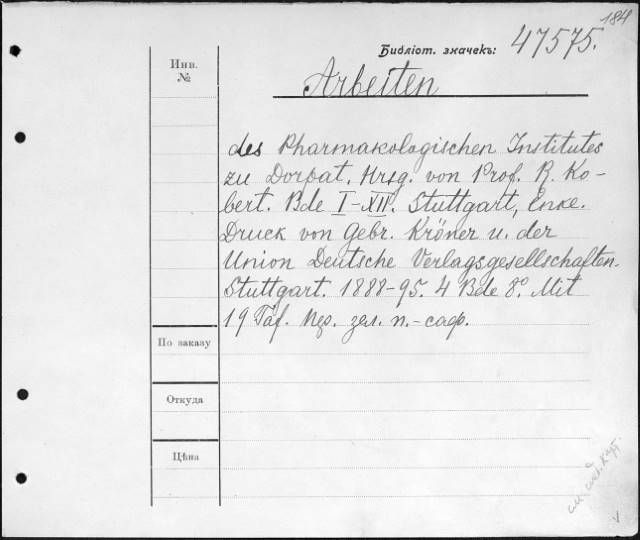 184
Библіот. значекъ: 47575.
Инв.
№
Arbeiten
des Pharmakologischen Institutes
zu Dorpat. Hrsg. von Prof. R. Ko-
bert. Bde I-XII. Stuttgart, Enke.
Druck von Gebr. Kröner u. der
Union Deutsche Verlagsgesellschaften.
Stuttgart. 1888-95. 4 Bde 8º. Mit
19 Taf. Пер. зел. п.-саф.
По заказу
Откуда
Цѣна
см. сист. кат.
v